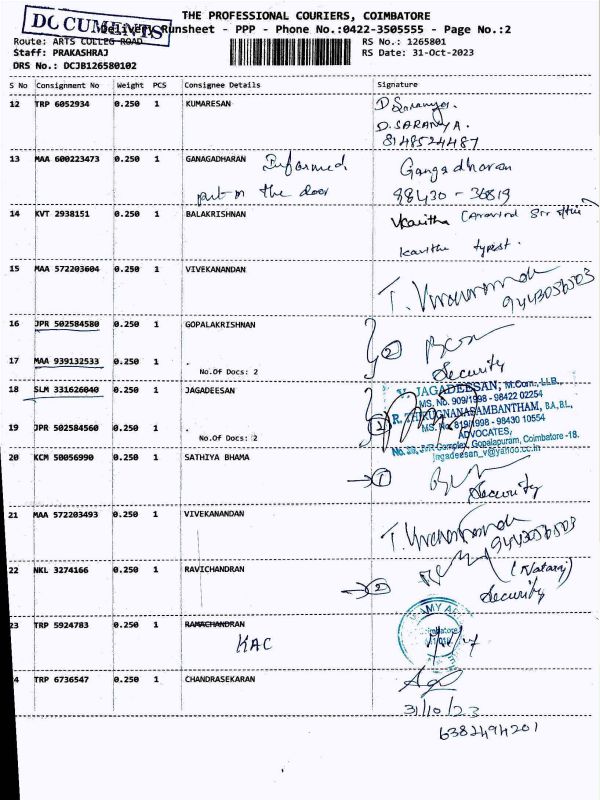 DOCUMENTS
THE PROFESSIONAL COURIERS, COIMBATORE
Delivery Runsheet - PPP - Phone No.:0422-3505555 - Page No.:2
Route: ARTS COLLEG ROAD
RS No.: 1265801
Staff: PRAKASHRAJ
RS Date: 31-Oct-2023
DRS No.: DCJB126580102
S No Consignment No Weight PCS Consignee Details Signature
12 TRP 6052934 0.250 1 KUMARESAN
D Saranya.
D. SARANYA.
8148524487
13 MAA 600223473 0.250 1 GANAGADHARAN Informed Gangadharan
put in the door 98430 - 36819
14 KVT 2938151 0.250 1 BALAKRISHNAN Kavitha (Aravind Sir office)
Kavitha typist.
15 MAA 572203604 0.250 1 VIVEKANANDAN
T. Vivekananda
9443056503
16 JPR 502584580 0.250 1 GOPALAKRISHNAN
2
17 MAA 939132533 0.250 1 .
No.Of Docs: 2
Security
18 SLM 331626040 0.250 1 JAGADEESAN
V. JAGADEESAN, M.Com., LLB.,
MS. No. 909/1998 - 98422 02254
R. THIRUGNANASAMBANTHAM, B.A.,B.L.,
MS. No. 819/1998 - 98430 10554
ADVOCATES,
No. Complex, Gopalapuram, Coimbatore -18.
jagadeesan_v@yahoo.co.in
19 JPR 502584560 0.250 1 .
No.Of Docs: 2
20 KCM 50056990 0.250 1 SATHIYA BHAMA
1
Security
21 MAA 572203493 0.250 1 VIVEKANANDAN
T. Vivekananda
9443056503
22 NKL 3274166 0.250 1 RAVICHANDRAN
2
(Nataraj)
Security
23 TRP 5924783 0.250 1 RAMACHANDRAN
KAC
4 TRP 6736547 0.250 1 CHANDRASEKARAN
31/10/23
6382494201